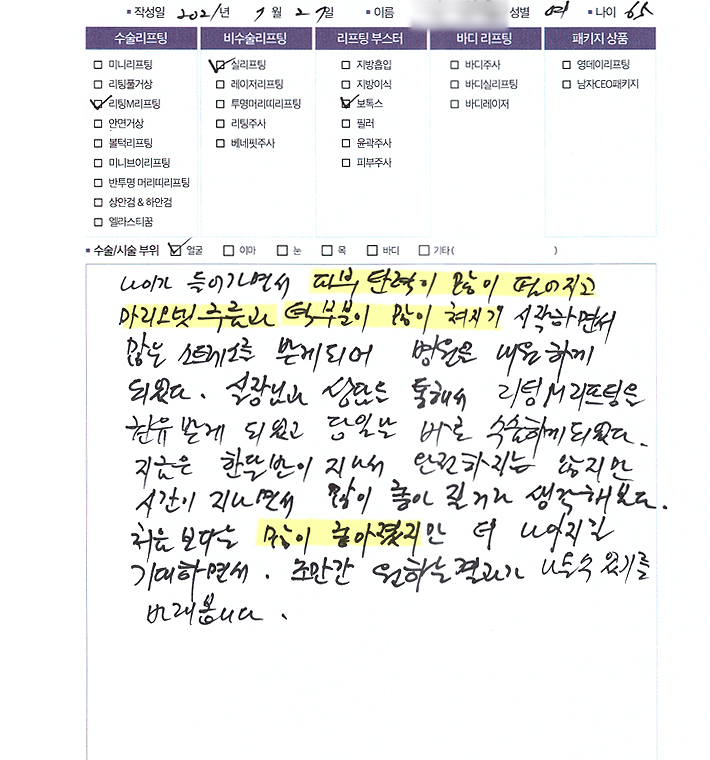 작성일 2021년 7월 27일 이름 성별 여 나이 65
수술리프팅 비수술리프팅 리프팅 부스터 바디 리프팅 패키지 상품
미니리프팅 실리프팅 지방흡입 바디주사 영데이리프팅
리팅풀거상 레이저리프팅 지방이식 바디실리프팅 남자CEO패키지
리팅M리프팅 투명머리띠리프팅 보톡스 바디레이저
안면거상 리팅주사 필러
볼턱리프팅 베네핏주사 윤곽주사
미니브이리프팅 피부주사
반투명 머리띠리프팅
상안검 & 하안검
엘라스티꿈
수술/시술 부위 얼굴 이마 눈 목 바디 기타( )
나이가 들어가면서 피부 탄력이 많이 떨어지고
마리오넷 주름과 턱부분이 많이 쳐지기 시작하면서
많은 스트레스를 받게되어 병원을 내원하게
되었다. 실장님과 상담을 통해서 리팅M리프팅을
권유 받게 되었고 당일날 바로 수술하게되었다.
지금은 한달반이 지나서 완전하지는 않지만
시간이 지나면서 많이 좋아 질거라 생각해본다.
처음보다는 많이 좋아졌지만 더 나아지길
기대하면서. 조만간 원하는결과가 나올수 있기를
바래봅니다.